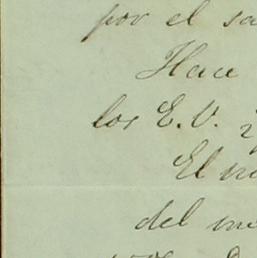 por el sa
Hace
los E.V. 2
El m
del me